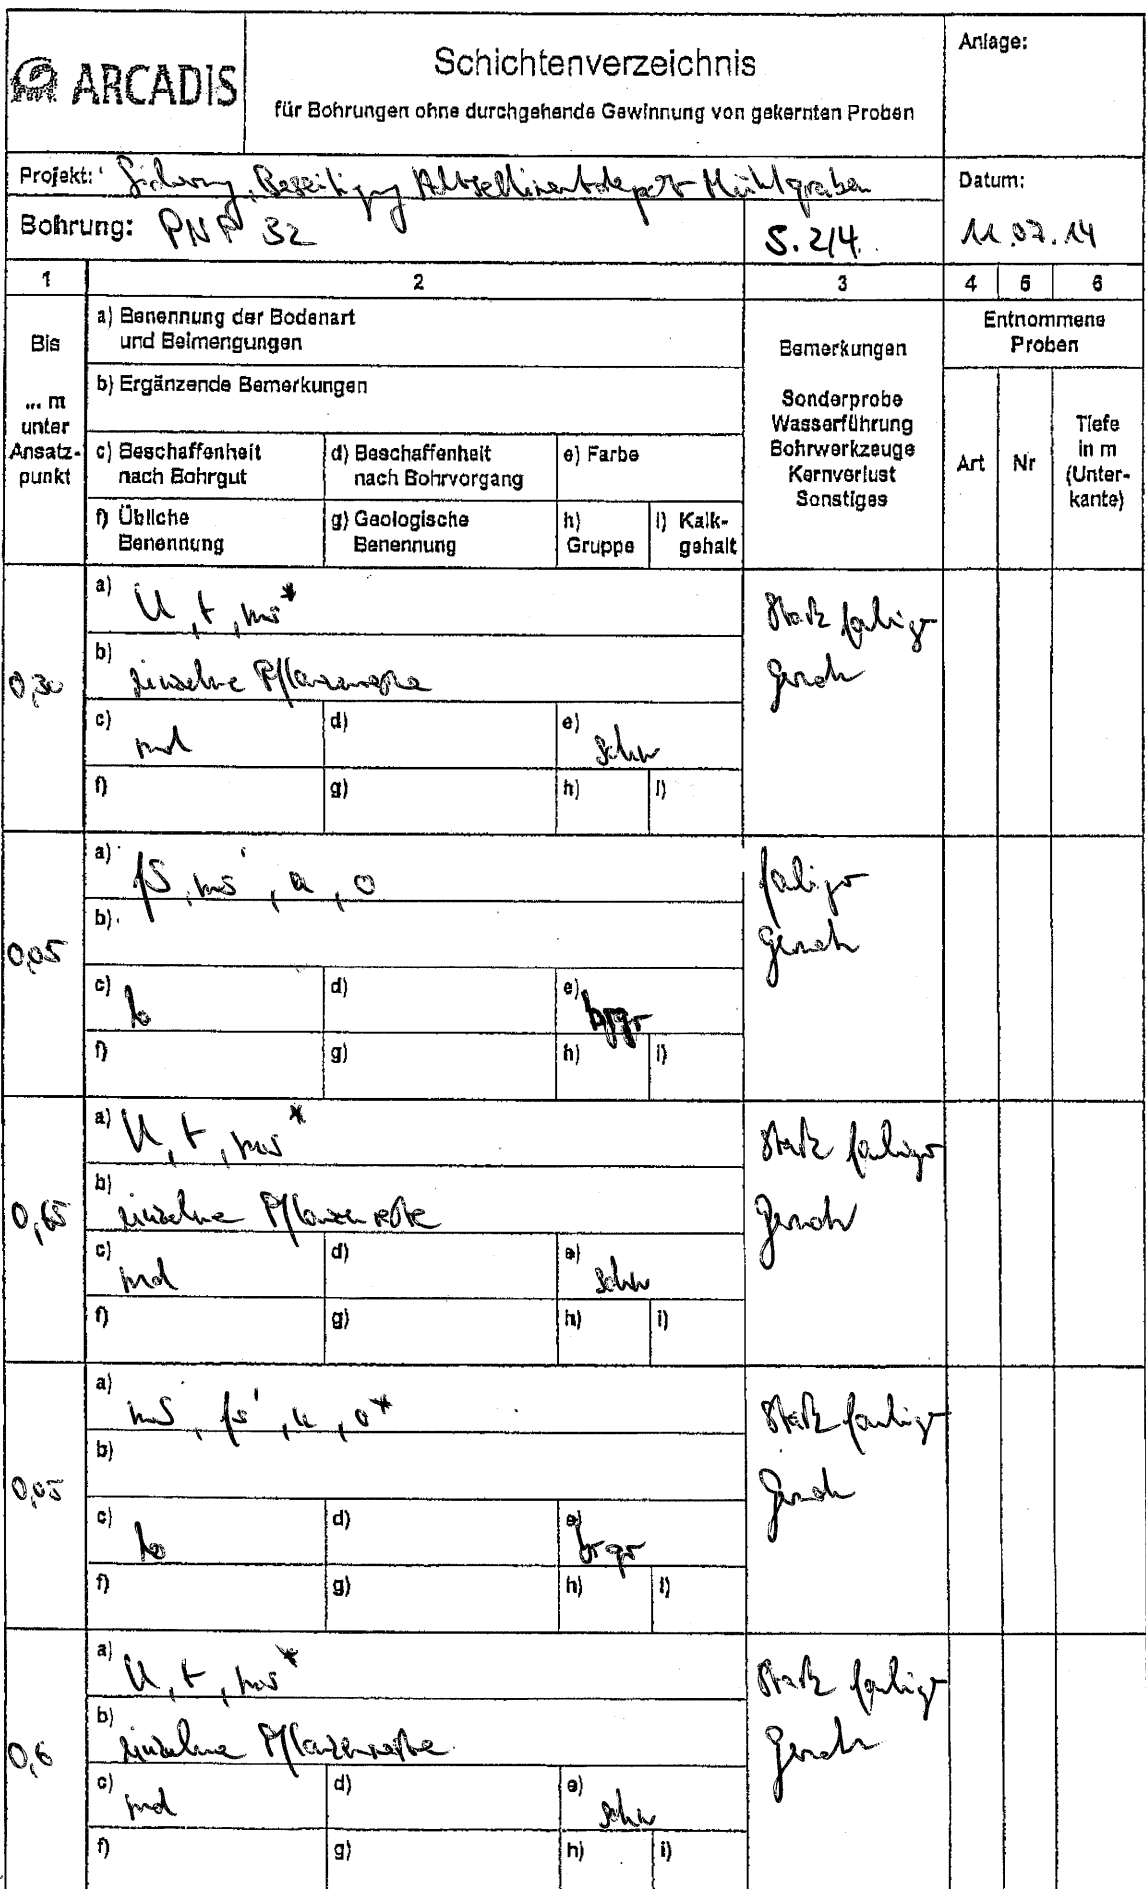 ARCADIS
Schichtenverzeichnis
für Bohrungen ohne durchgehende Gewinnung von gekernten Proben
Anlage:
Projekt: Sicherung, Beseitigung Altsedimentdepot Mühlgraben
Datum:
Bohrung: PNP 32
S. 2/4
11.07.14
1 2 3 4 5 6
Bis
... m
unter
Ansatz-
punkt
a) Benennung der Bodenart
und Beimengungen
b) Ergänzende Bemerkungen
c) Beschaffenheit
nach Bohrgut
d) Beschaffenheit
nach Bohrvorgang
e) Farbe
f) Übliche
Benennung
g) Geologische
Benennung
h)
Gruppe
i) Kalk-
gehalt
Bemerkungen
Sonderprobe
Wasserführung
Bohrwerkzeuge
Kernverlust
Sonstiges
Entnommene
Proben
Art
Nr
Tiefe
in m
(Unter-
kante)
0,30
a) U, t, ms*
b) einzelne Pflanzenreste
c) md
d)
e) schw
f)
g)
h)
i)
stark fauliger
Geruch
0,05
a) fS, ms', u, o
b)
c) lo
d)
e) brgr
f)
g)
h)
i)
fauliger
Geruch
0,65
a) U, t, ms*
b) einzelne Pflanzenreste
c) md
d)
e) schw
f)
g)
h)
i)
stark fauliger
Geruch
0,05
a) mS, fs', u, o*
b)
c) lo
d)
e) brgr
f)
g)
h)
i)
stark fauliger
Geruch
0,6
a) U, t, ms*
b) einzelne Pflanzenreste
c) md
d)
e) schw
f)
g)
h)
i)
stark fauliger
Geruch